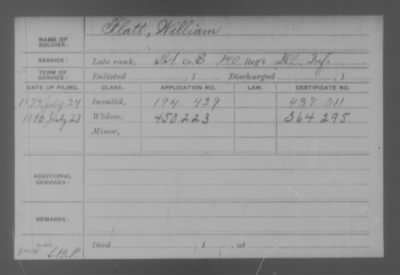 NAME OF SOLDIER: Flatt, William
SERVICE: Late rank, Pvt. Co. E 140 Reg't Ill. Inf.
TERM OF SERVICE: Enlisted , 1 Discharged , 1
DATE OF FILING. CLASS. APPLICATION NO. LAW. CERTIFICATE NO.
July 24 Invalid, 194.429 438.011
July 23 Widow, 450223 364295
Minor,
ADDITIONAL SERVICES:
REMARKS:
Died , 1 , at